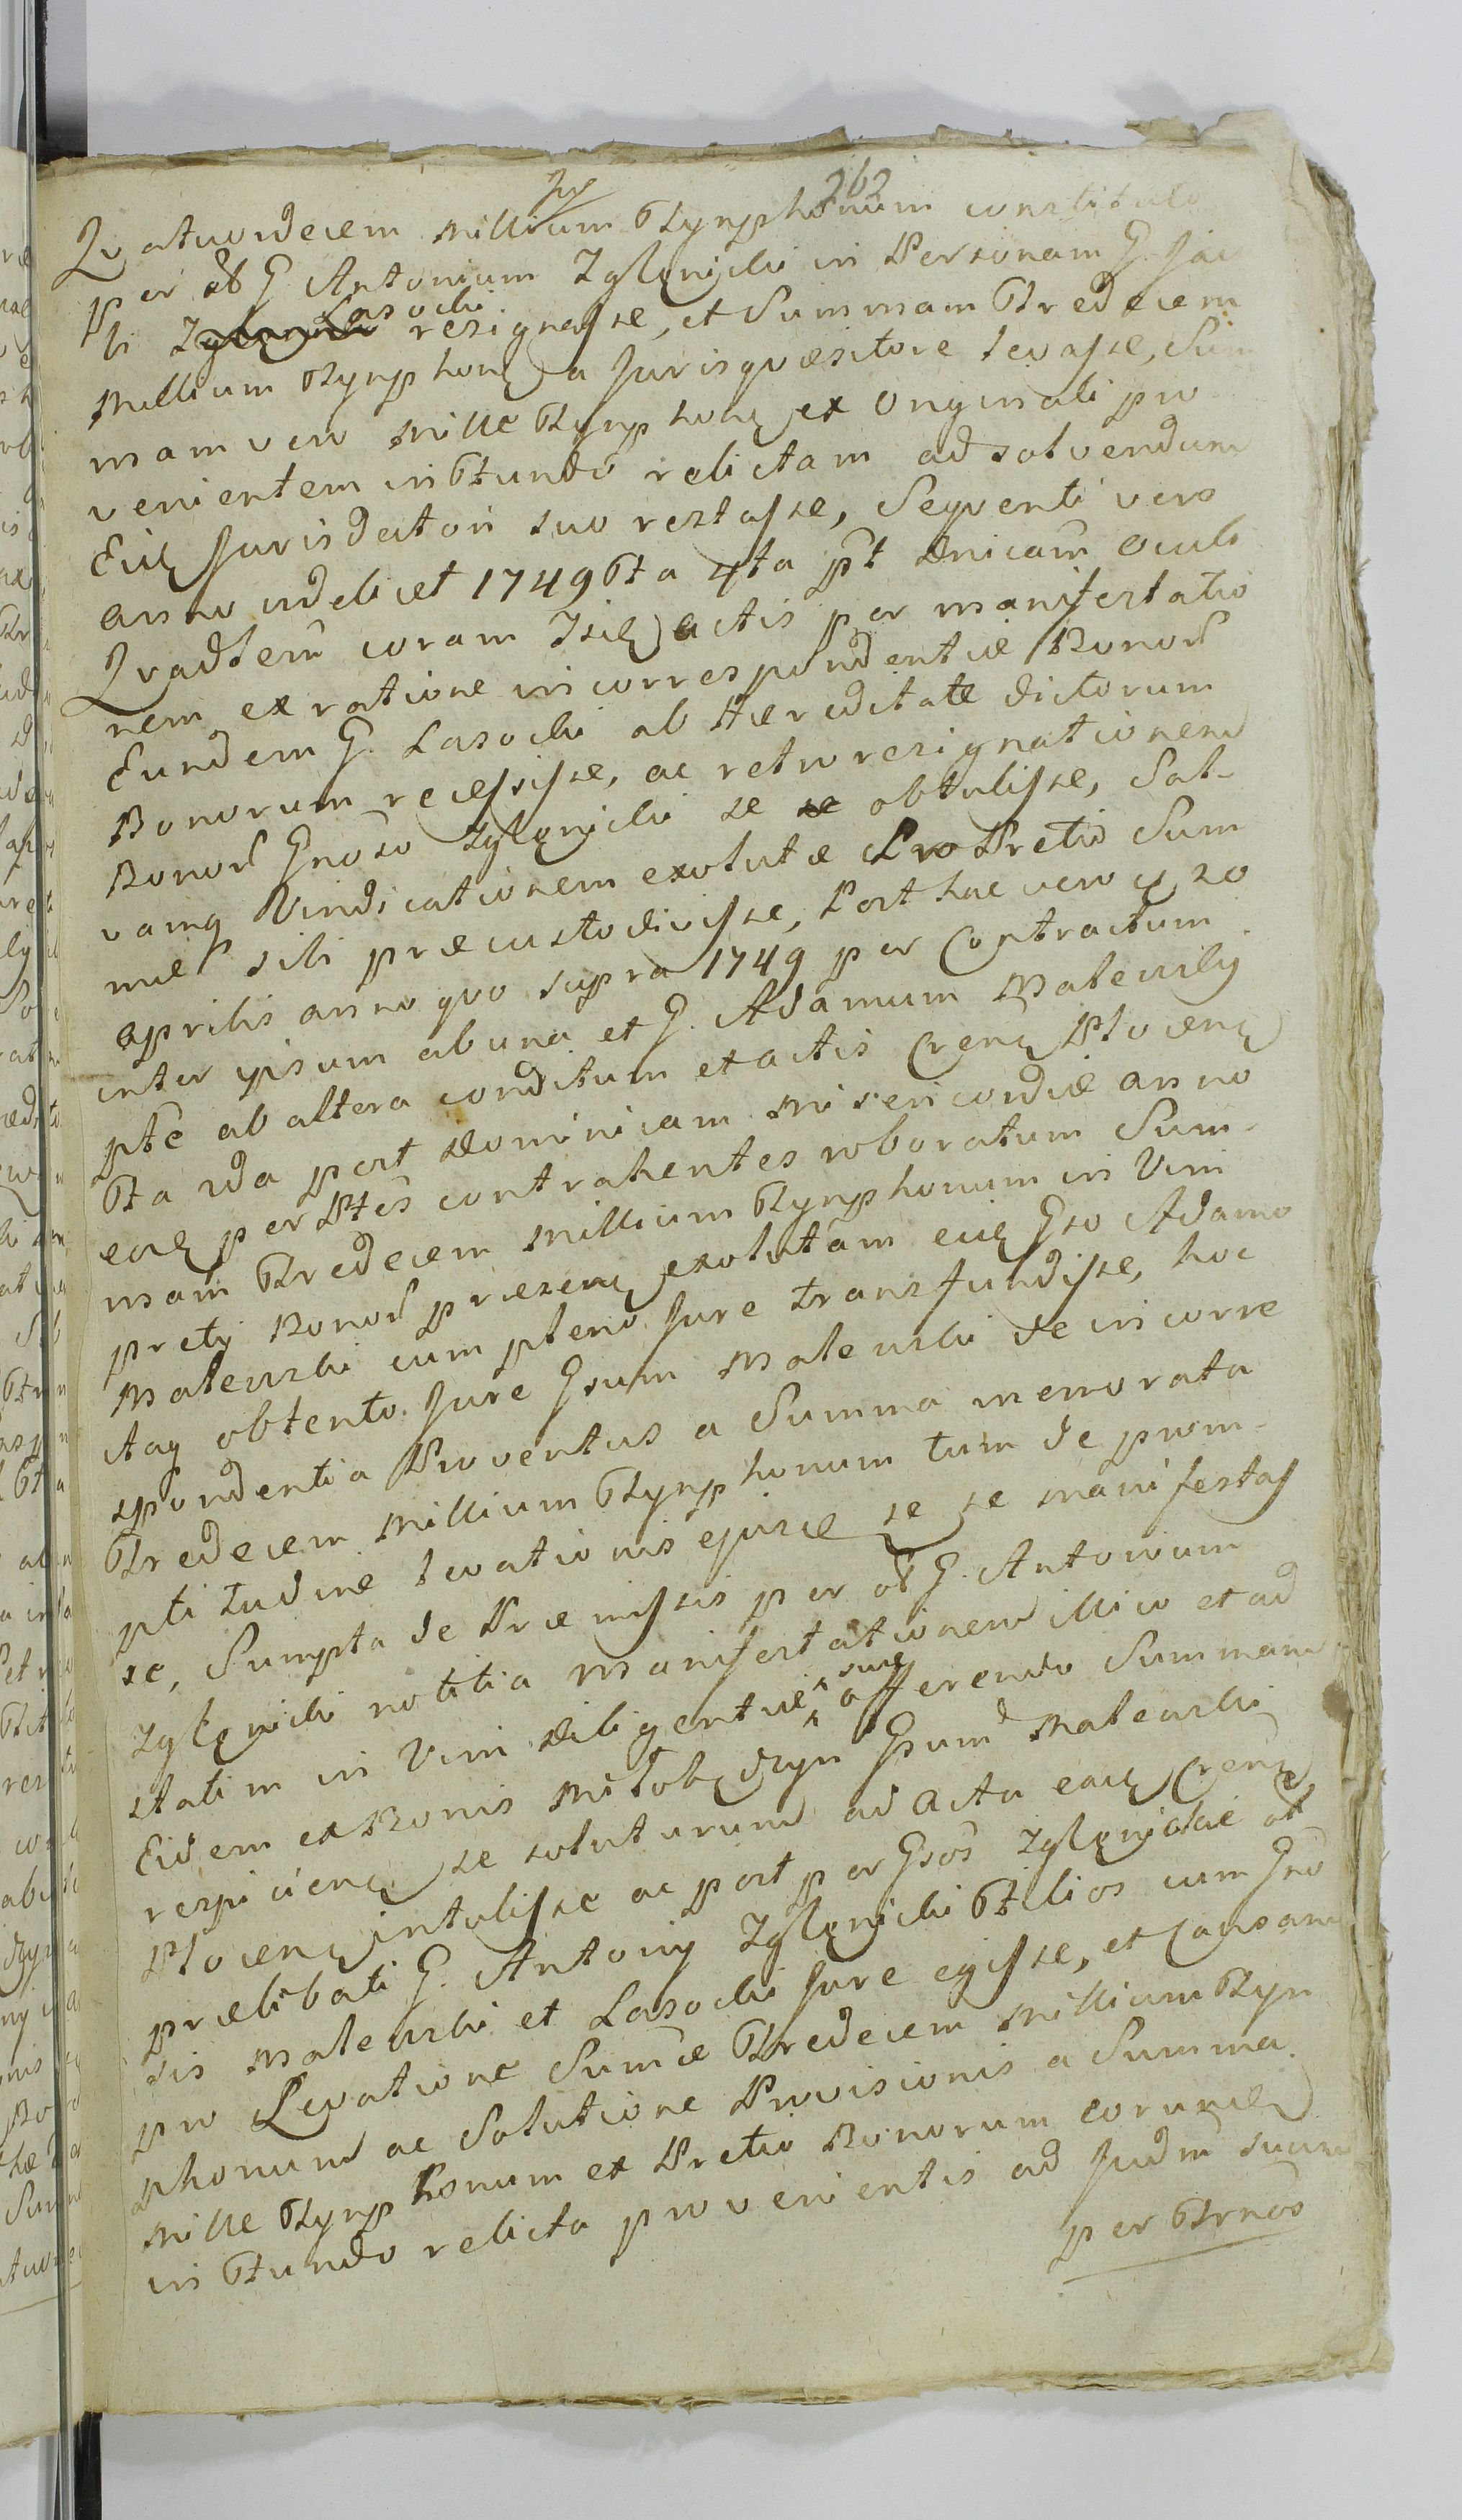 262
Quatuordecem Millium Tynphonum constituto
per ol G Antonium Zglenicki in Personam G. Jaco
bi Lasocki resignasse, et Summam Tredecem
Millium Tynphonę a Jurisquæsitore levasse, Sum
mam vero Mille Tynphonę ex Originali pro
venientem in Fundo relictam ad solvendum
Eidę Jurisdatori suo restasse, Sequenti vero
anno videlicet 1749 Fta 4ta pt Dnicam Oculi
Quadlem coram Isdę Actis per manifestatio
nem ex ratione incorrespondentiæ Bonor
Eundem G. Lasocki ab Hæreditate dictorum
Bonorum recessisse, ac retroresignationem
Bonor Gnoso Zglenicki se se obtulisse, Sal-
vamq Vindicationem exolutæ Pro Pretio Sum
mæ sibi præcustodivisse, Post hac vero 20
Aprilis anno quo supra 1749 per Contractum
inter ipsum ab una et G. Adamum Malewsky
pte ab altera conditum et actis Crenę Plocenę
Fta 2da post Dominicam Misericordiæ anno
eodę per Ptes contrahentes roboratum Sum-
mam Tredecem Millium Tynphonum in Vim
prety Bonor præsenę exolutam eidę Gso Adamo
Malewski cum pleno Jure transfundisse, hoc
itaq obtento Jure Gsum Malewski de incorre
spondentia Proventus a Summa memorata
Tredecem Millium Tynphonum tum de prom-
ptitudine levationis ejusdę se se manifestas
se, Sumpta de Præmissis per ol G. Antonium
Zglenicki notitia Manifestationem illico et ad
statim in Vim Diligentiæ suæ afferendo Summam
Eidem ex Bonis Miłobędzyn Gsum Malewski
respicienę se soluturum ad Acta eadę Crenę
Plocenę intulisse ac post per Gsos Zglenickie ol
prælibati G. Antonij Zglenicki Filios cum Gno
sis Malewski et Lasocki Jure egisse, et Causam
pro Levatione Summæ Tredecem Millium Tyn
phonum ac Solutione Provisionis a Summa
Mille Tynphonum ex Pretio Bonorum eorundę
in Fundo relicta provenientis ad Judm suum
per Trnos